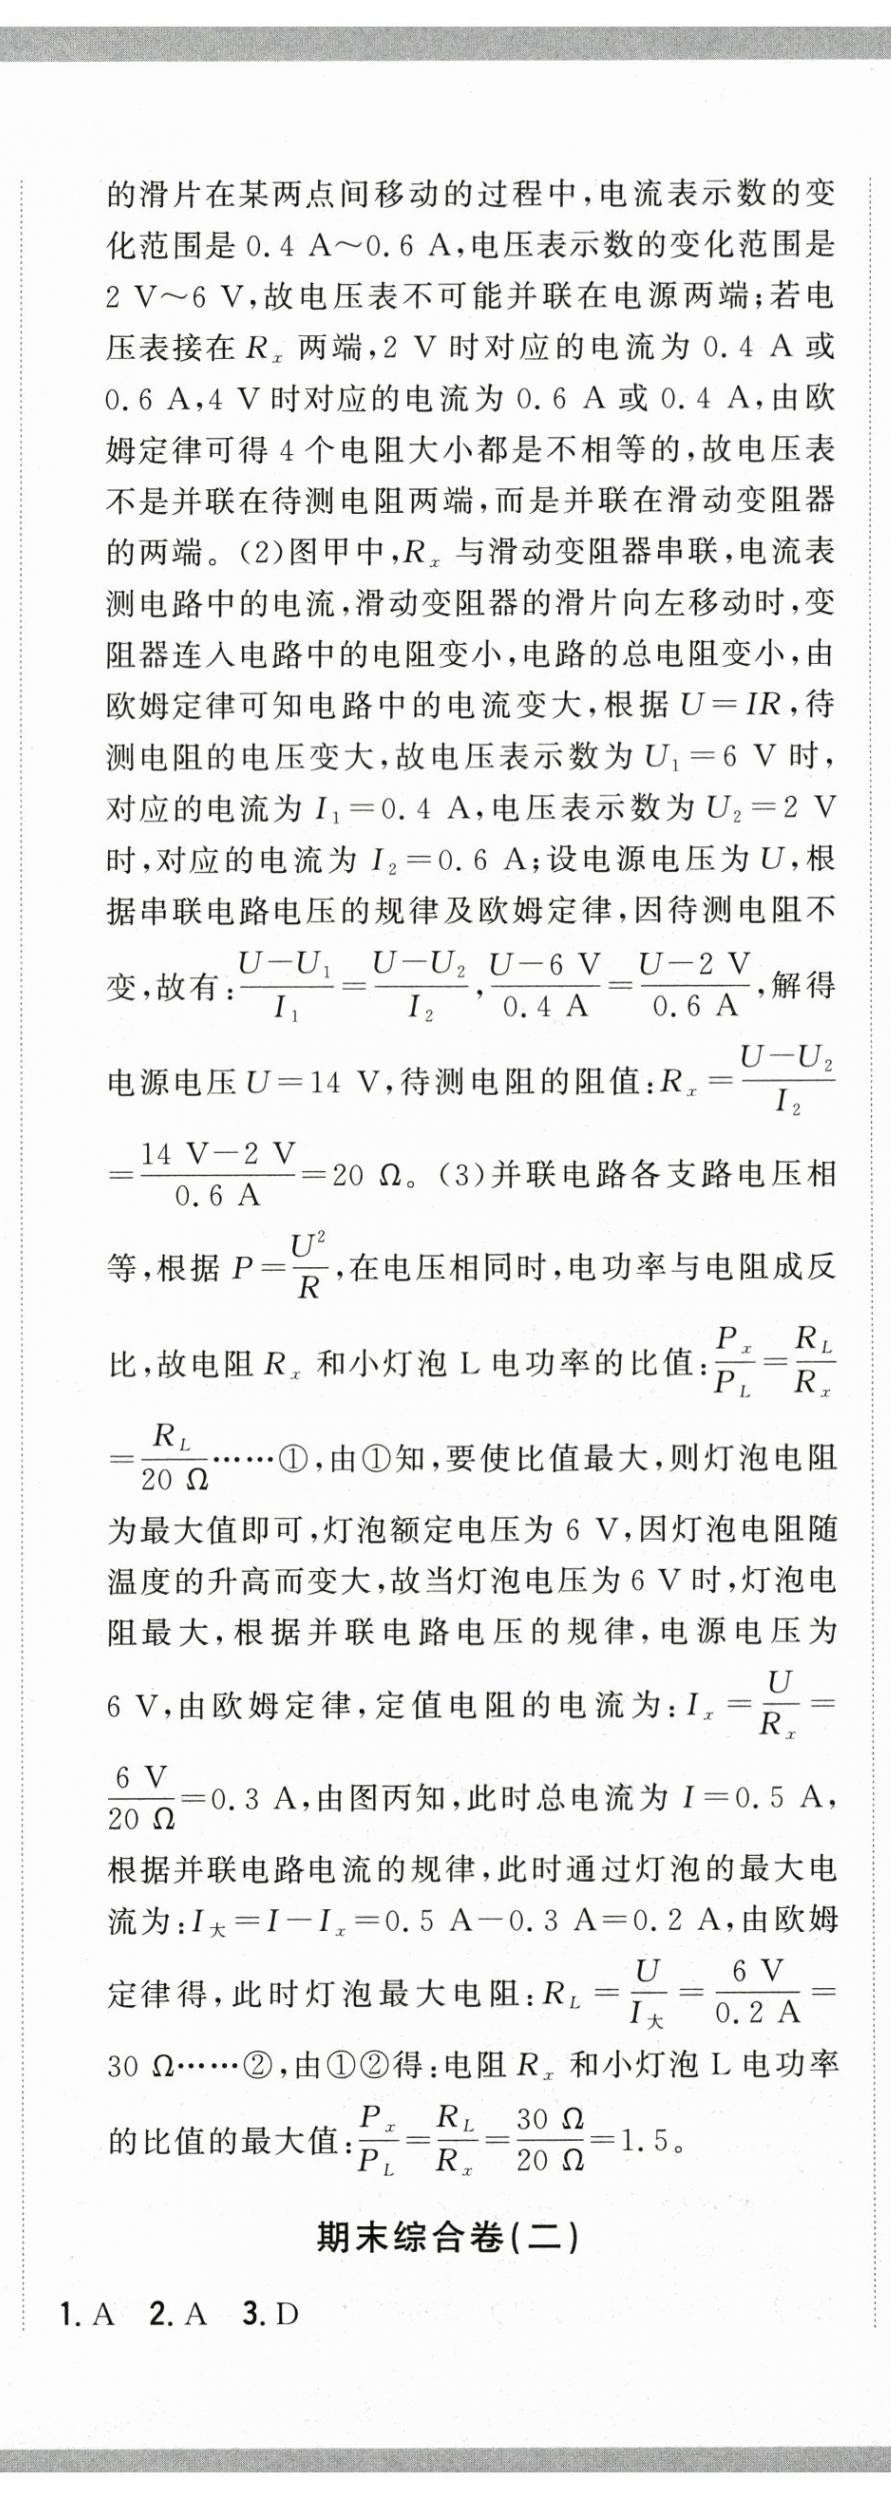 的滑片在某两点间移动的过程中,电流表示数的变
化范围是 0.4 A～0.6 A,电压表示数的变化范围是
2 V～6 V,故电压表不可能并联在电源两端;若电
压表接在 Rₓ 两端,2 V 时对应的电流为 0.4 A 或
0.6 A,4 V 时对应的电流为 0.6 A 或 0.4 A,由欧
姆定律可得 4 个电阻大小都是不相等的,故电压表
不是并联在待测电阻两端,而是并联在滑动变阻器
的两端。(2)图甲中,Rₓ 与滑动变阻器串联,电流表
测电路中的电流,滑动变阻器的滑片向左移动时,变
阻器连入电路中的电阻变小,电路的总电阻变小,由
欧姆定律可知电路中的电流变大,根据 U=IR,待
测电阻的电压变大,故电压表示数为 U₁=6 V 时,
对应的电流为 I₁=0.4 A,电压表示数为 U₂=2 V
时,对应的电流为 I₂=0.6 A;设电源电压为 U,根
据串联电路电压的规律及欧姆定律,因待测电阻不
变,故有:(U-U₁)/I₁=(U-U₂)/I₂,(U-6 V)/(0.4 A)=(U-2 V)/(0.6 A),解得
电源电压 U=14 V,待测电阻的阻值:Rₓ=(U-U₂)/I₂
=(14 V-2 V)/(0.6 A)=20 Ω。(3)并联电路各支路电压相
等,根据 P=U²/R,在电压相同时,电功率与电阻成反
比,故电阻 Rₓ 和小灯泡 L 电功率的比值:Pₓ/P_L=R_L/Rₓ
=R_L/(20 Ω)……①,由①知,要使比值最大,则灯泡电阻
为最大值即可,灯泡额定电压为 6 V,因灯泡电阻随
温度的升高而变大,故当灯泡电压为 6 V 时,灯泡电
阻最大,根据并联电路电压的规律,电源电压为
6 V,由欧姆定律,定值电阻的电流为:Iₓ=U/Rₓ=
(6 V)/(20 Ω)=0.3 A,由图丙知,此时总电流为 I=0.5 A,
根据并联电路电流的规律,此时通过灯泡的最大电
流为:I大=I-Iₓ=0.5 A-0.3 A=0.2 A,由欧姆
定律得,此时灯泡最大电阻:R_L=U/I大=(6 V)/(0.2 A)=
30 Ω……②,由①②得:电阻 Rₓ 和小灯泡 L 电功率
的比值的最大值:Pₓ/P_L=R_L/Rₓ=(30 Ω)/(20 Ω)=1.5。
期末综合卷(二)
1. A 2. A 3. D